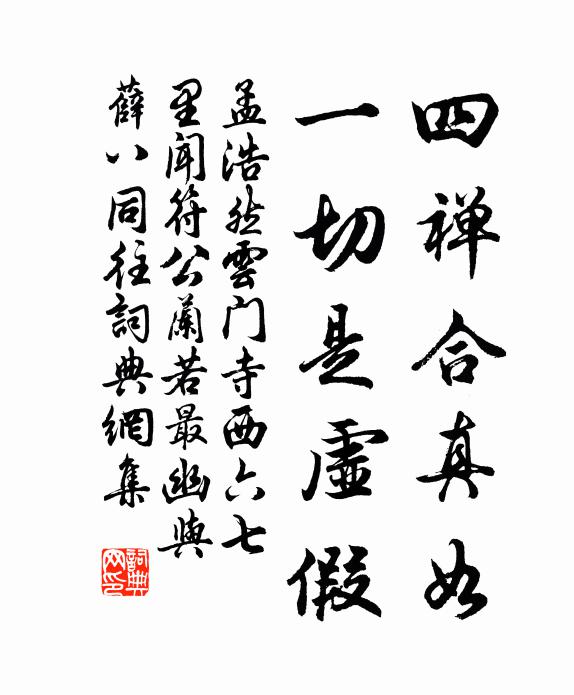 四禅合真如
一切是虛假
孟浩然雲门寺西六七
里闻符公蘭若最幽與
薛八同往詞典網集
詞典
网印